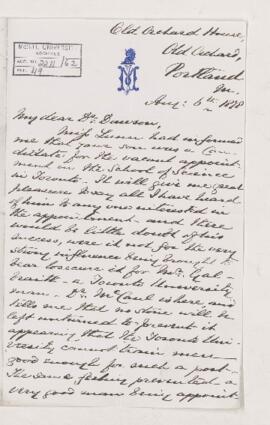 McGILL UNIVERSITY
ARCHIVES
ACC. NO. 2211/62
REF. 49
Old Orchard House,
Old Orchard,
Portland
Me.
Aug: 6th 1878
My dear Dr. Dawson,
Miss Lunn had informed
me that your son was a Can-
didate for the vacant appoint-
ment on the School of Science
in Toronto. It will give me great
pleasure to say all I have heard
of him to any one interested in
the appointment - and there
would be little doubt of his
success, were it not for the very
strong influence being brought to
bear to secure it for Mr. Gal-
braith - a Toronto University
man. Dr. McCaul is here, and
tells me that no stone will be
left unturned to prevent it
appearing that the Toronto Uni-
versity cannot train men
good enough for such a post -
The same feeling prevented a
very good man being appoint-